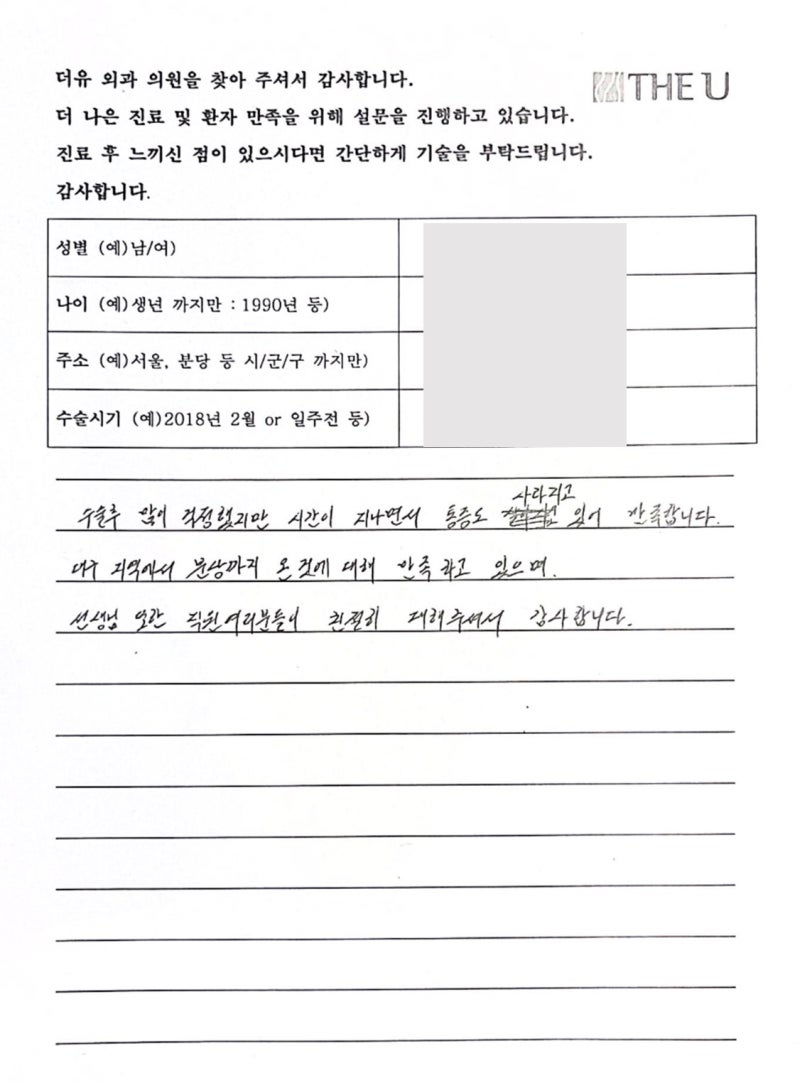 더유 외과 의원을 찾아 주셔서 감사합니다.
THE U
더 나은 진료 및 환자 만족을 위해 설문을 진행하고 있습니다.
진료 후 느끼신 점이 있으시다면 간단하게 기술을 부탁드립니다.
감사합니다.
성별 (예)남/여)
나이 (예)생년 까지만 : 1990년 등)
주소 (예)서울, 분당 등 시/군/구 까지만)
수술시기 (예)2018년 2월 or 일주전 등)
사라지고
수술후 많이 걱정했지만 시간이 지나면서 통증도 있어 만족합니다.
대구 지역에서 분당까지 온 것에 대해 만족 하고 있으며.
선생님 또한 직원여러분들이 친절히 대해주셔서 감사합니다.